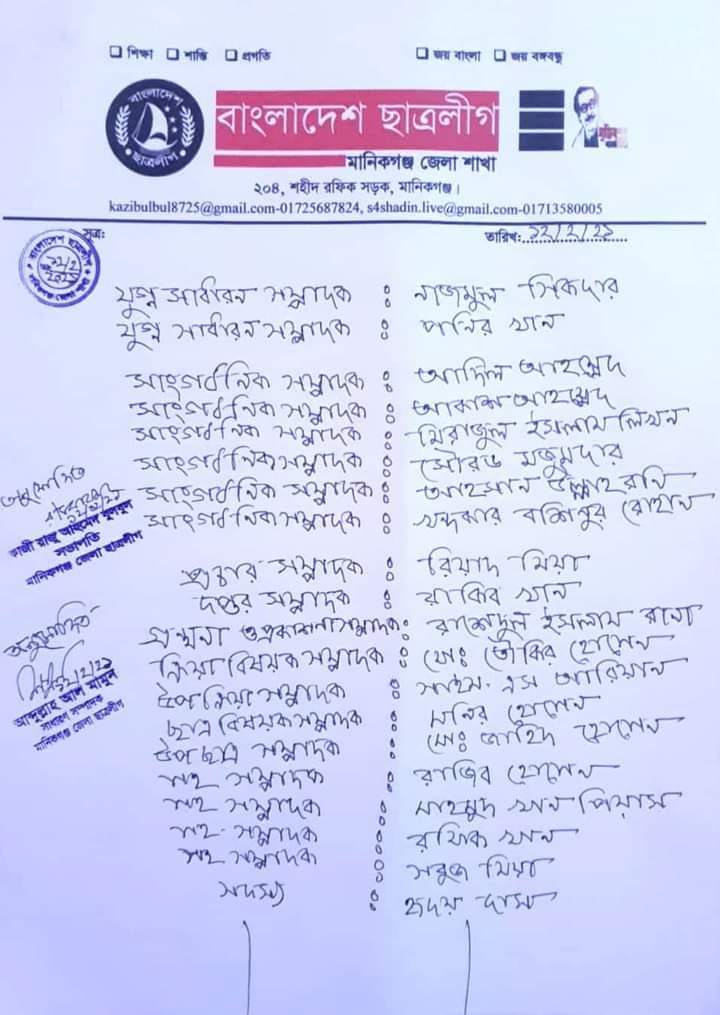 শিক্ষা শান্তি প্রগতি জয় বাংলা জয় বঙ্গবন্ধু
বাংলাদেশ ছাত্রলীগ
বাংলাদেশ ছাত্রলীগ
মানিকগঞ্জ জেলা শাখা
২০৪, শহীদ রফিক সড়ক, মানিকগঞ্জ।
kazibulbul8725@gmail.com-01725687824, s4shadin.live@gmail.com-01713580005
সূত্র: তারিখ: ১২/২/২১
যুগ্ম সাধারন সম্পাদক : নাজমুল সিকদার
যুগ্ম সাধারন সম্পাদক : পনির খান
সাংগঠনিক সম্পাদক : আদিল আহম্মেদ
সাংগঠনিক সম্পাদক : আকাশ আহম্মেদ
সাংগঠনিক সম্পাদক : মিরাজুল ইসলাম লিখন
সাংগঠনিক সম্পাদক : সৌরভ মজুমদার
সাংগঠনিক সম্পাদক : আহসান উল্লাহ রনি
সাংগঠনিক সম্পাদক : খন্দকার বশিপুর রোহান
অনুমোদিত
কাজী রাজু আহমেদ বুলবুল
সভাপতি
মানিকগঞ্জ জেলা ছাত্রলীগ
প্রচার সম্পাদক : রিয়াদ মিয়া
দপ্তর সম্পাদক : রাকিব খান
গ্রন্থনা ও প্রকাশনা সম্পাদক : রাশেদুল ইসলাম রানা
ক্রিয়া বিষয়ক সম্পাদক : মোঃ তৌকির হোসেন
উপ ক্রিয়া সম্পাদক : এস আরিয়ান
ছাত্র বিষয়ক সম্পাদক : মনির হোসেন
উপ ছাত্র সম্পাদক : মোঃ জাহিদ হোসেন
সহ সম্পাদক : রাজিব হোসেন
সহ সম্পাদক : মাহমুদ খান পিয়াস
সহ সম্পাদক : রফিক খান
সহ সম্পাদক : সবুজ মিয়া
সদস্য : হৃদয় দাস
অনুমোদিত
১২/২/২১
আব্দুল্লাহ আল মামুন
সাধারণ সম্পাদক
মানিকগঞ্জ জেলা ছাত্রলীগ